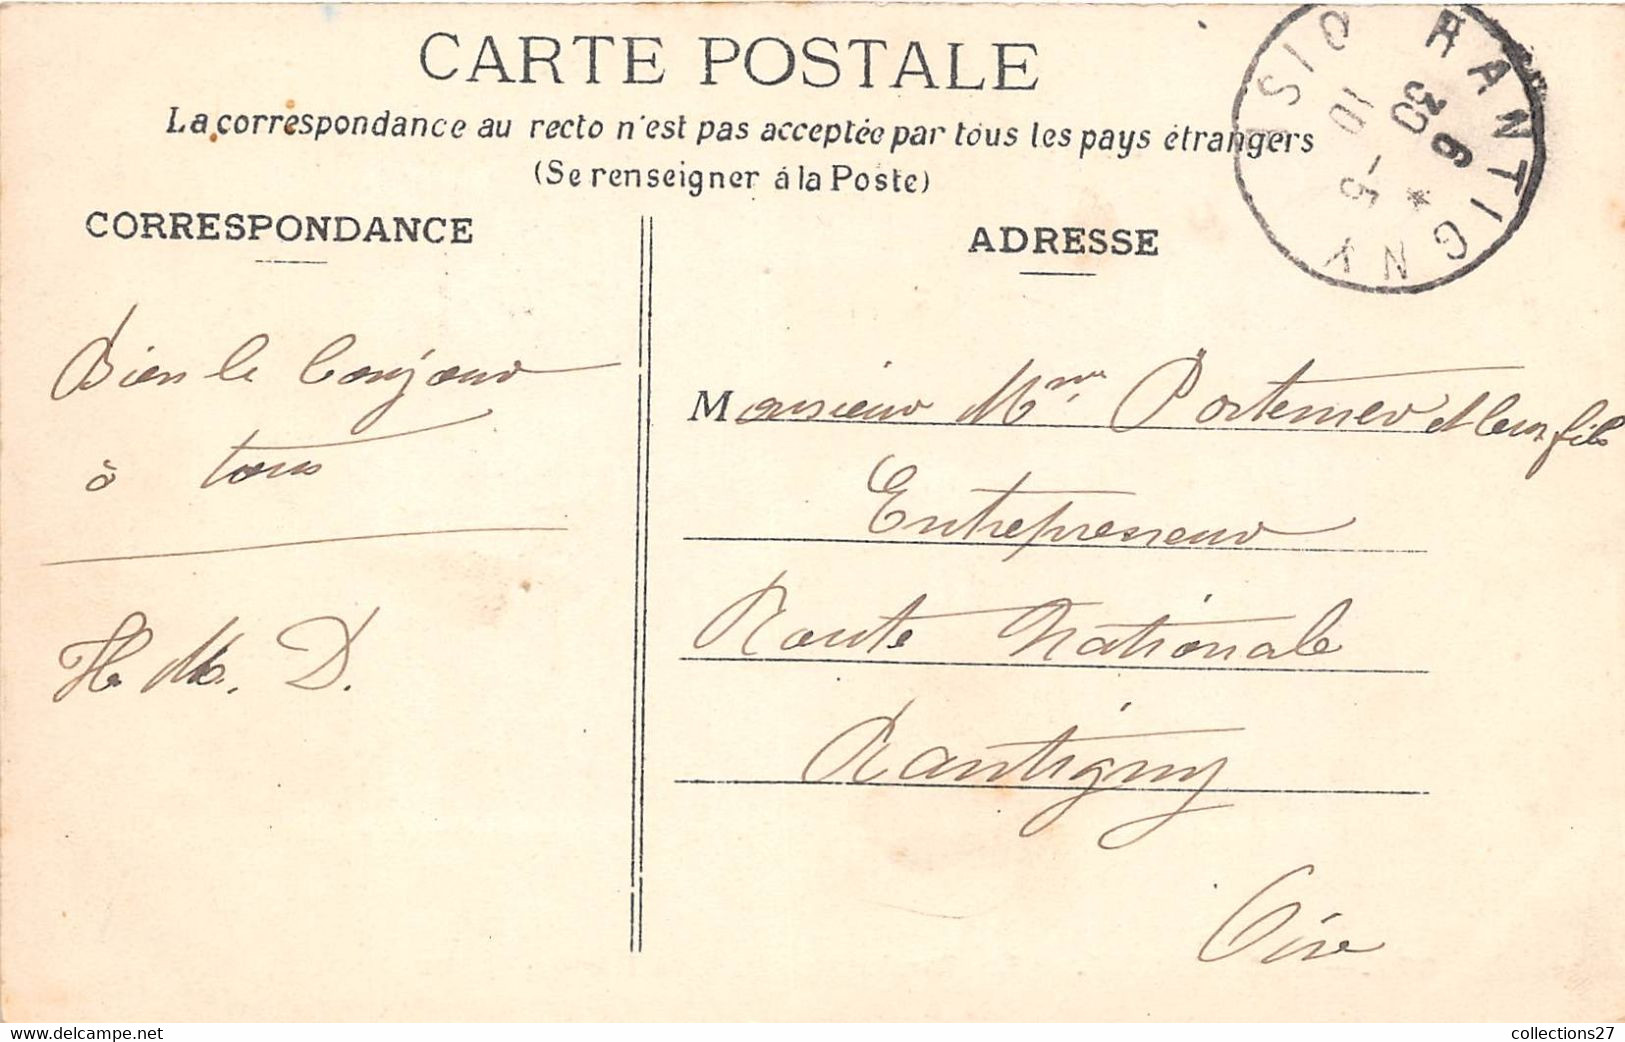 CARTE POSTALE
La correspondance au recto n'est pas acceptée par tous les pays étrangers
(Se renseigner à la Poste)
CORRESPONDANCE
Bien le bonjour
à tous
H. M. D.
ADRESSE
Monsieur Mme Portemer et leur fils
Entrepreneur
Route Nationale
Rantigny
Oise
RANTIGNY
OIS
6 30
10 -5
collections27